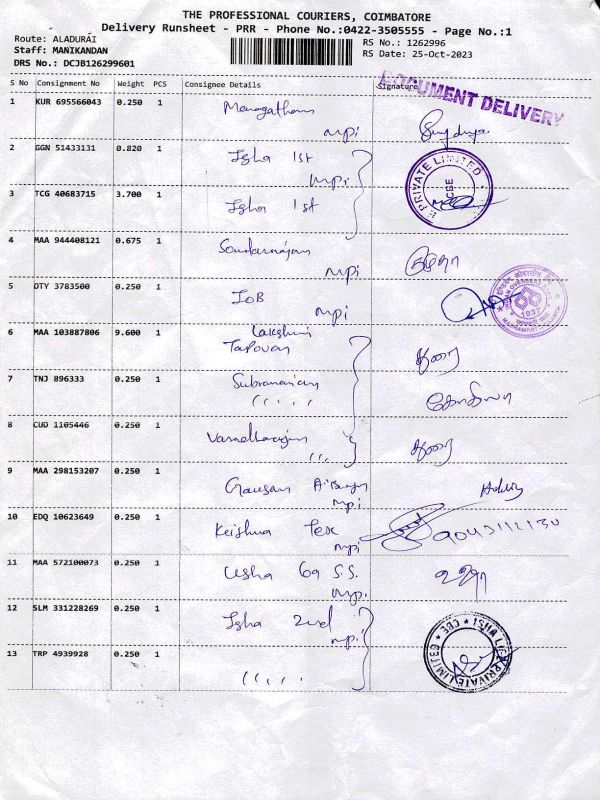 THE PROFESSIONAL COURIERS, COIMBATORE
Delivery Runsheet - PRR - Phone No.:0422-3505555 - Page No.:1
Route: ALADURAI
Staff: MANIKANDAN
DRS No.: DCJB126299601
RS No.: 1262996
RS Date: 25-Oct-2023
S No Consignment No Weight PCS Consignee Details Signature
DOCUMENT DELIVERY
1 KUR 695566043 0.250 1
mpi
2 GGN 51433131 0.820 1 Isha 1st
mpi
PRIVATE LIMITED CBE
3 TCG 40683715 3.700 1 Isha 1st
4 MAA 944408121 0.675 1
mpi
5 OTY 3783500 0.250 1 IOB
mpi
1937
6 MAA 103887806 9.600 1 Lakshmi
Tapovan
துரை
7 TNJ 896333 0.250 1
கோகிலா
8 CUD 1105446 0.250 1
துரை
9 MAA 298153207 0.250 1
mpi
10 EDQ 10623649 0.250 1 Tex
mpi
11 MAA 572100073 0.250 1 Usha S.S.
mpi
உஷா
12 SLM 331228269 0.250 1 Isha 2nd
mpi
PRIVATE LIMITED * CBE * ISHA
13 TRP 4939928 0.250 1